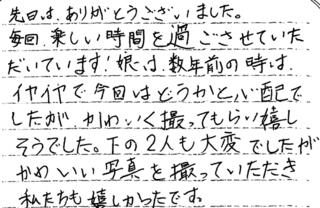 先日は、ありがとうございました。
毎回、楽しい時間を過ごさせていた
だいています！娘は、数年前の時は、
イヤイヤで今回はどうかと心配で
したが、かわいく撮ってもらい嬉し
そうでした。下の2人も大変でしたが
かわいい写真を撮っていただき
私たちも嬉しかったです。